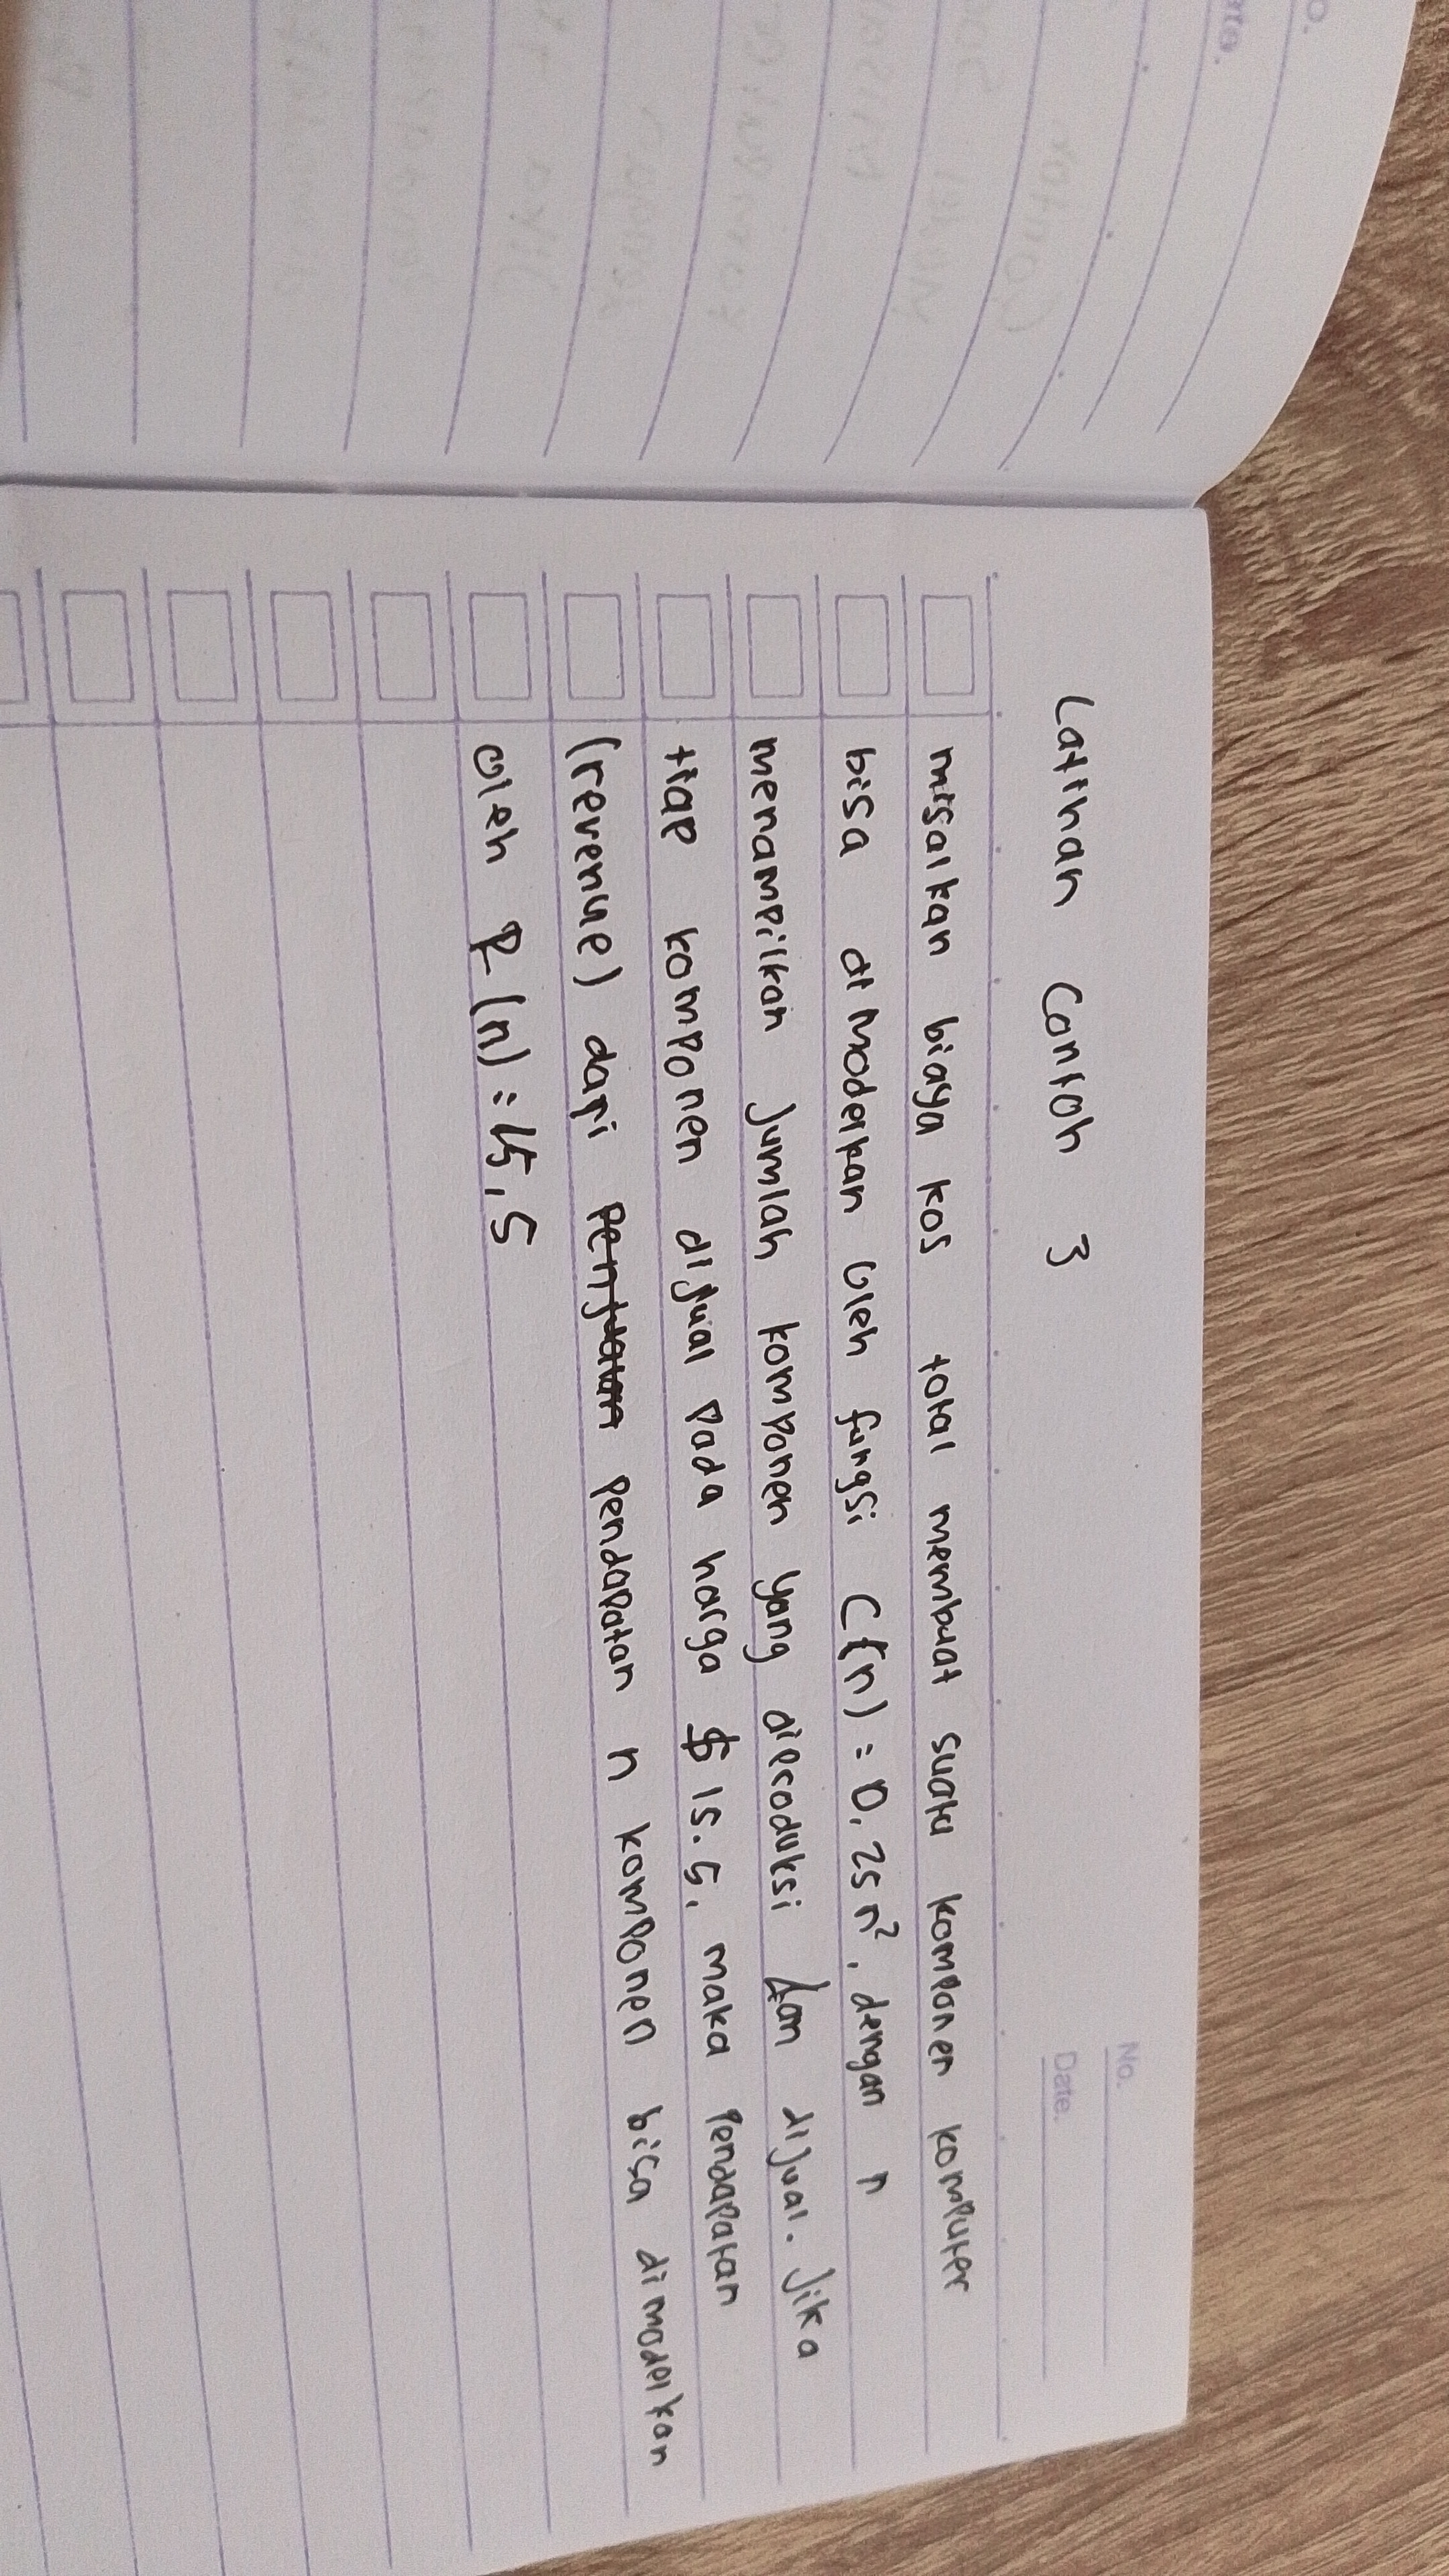 Latihan Contoh 3
No.
Date.
misalkan biaya kos total membuat suatu komponen komputer
bisa di modelkan oleh fungsi C(n) = 0,25n², dengan n
menampilkan jumlah komponen yang diproduksi dan dijual. Jika
tiap komponen dijual pada harga $ 15.5, maka pendapatan
(revenue) dari penjualan pendapatan n komponen bisa dimodelkan
oleh R(n) = 15,5